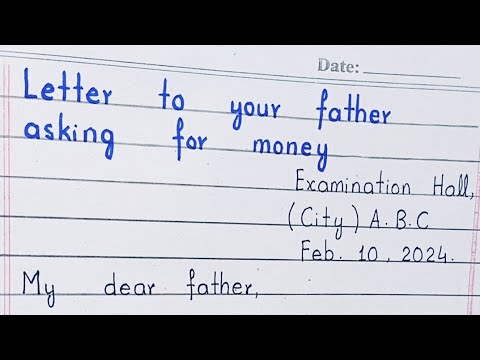 Date:
Letter to your father
asking for money
Examination Hall,
(City) A.B.C
Feb. 10, 2024.
My dear father,